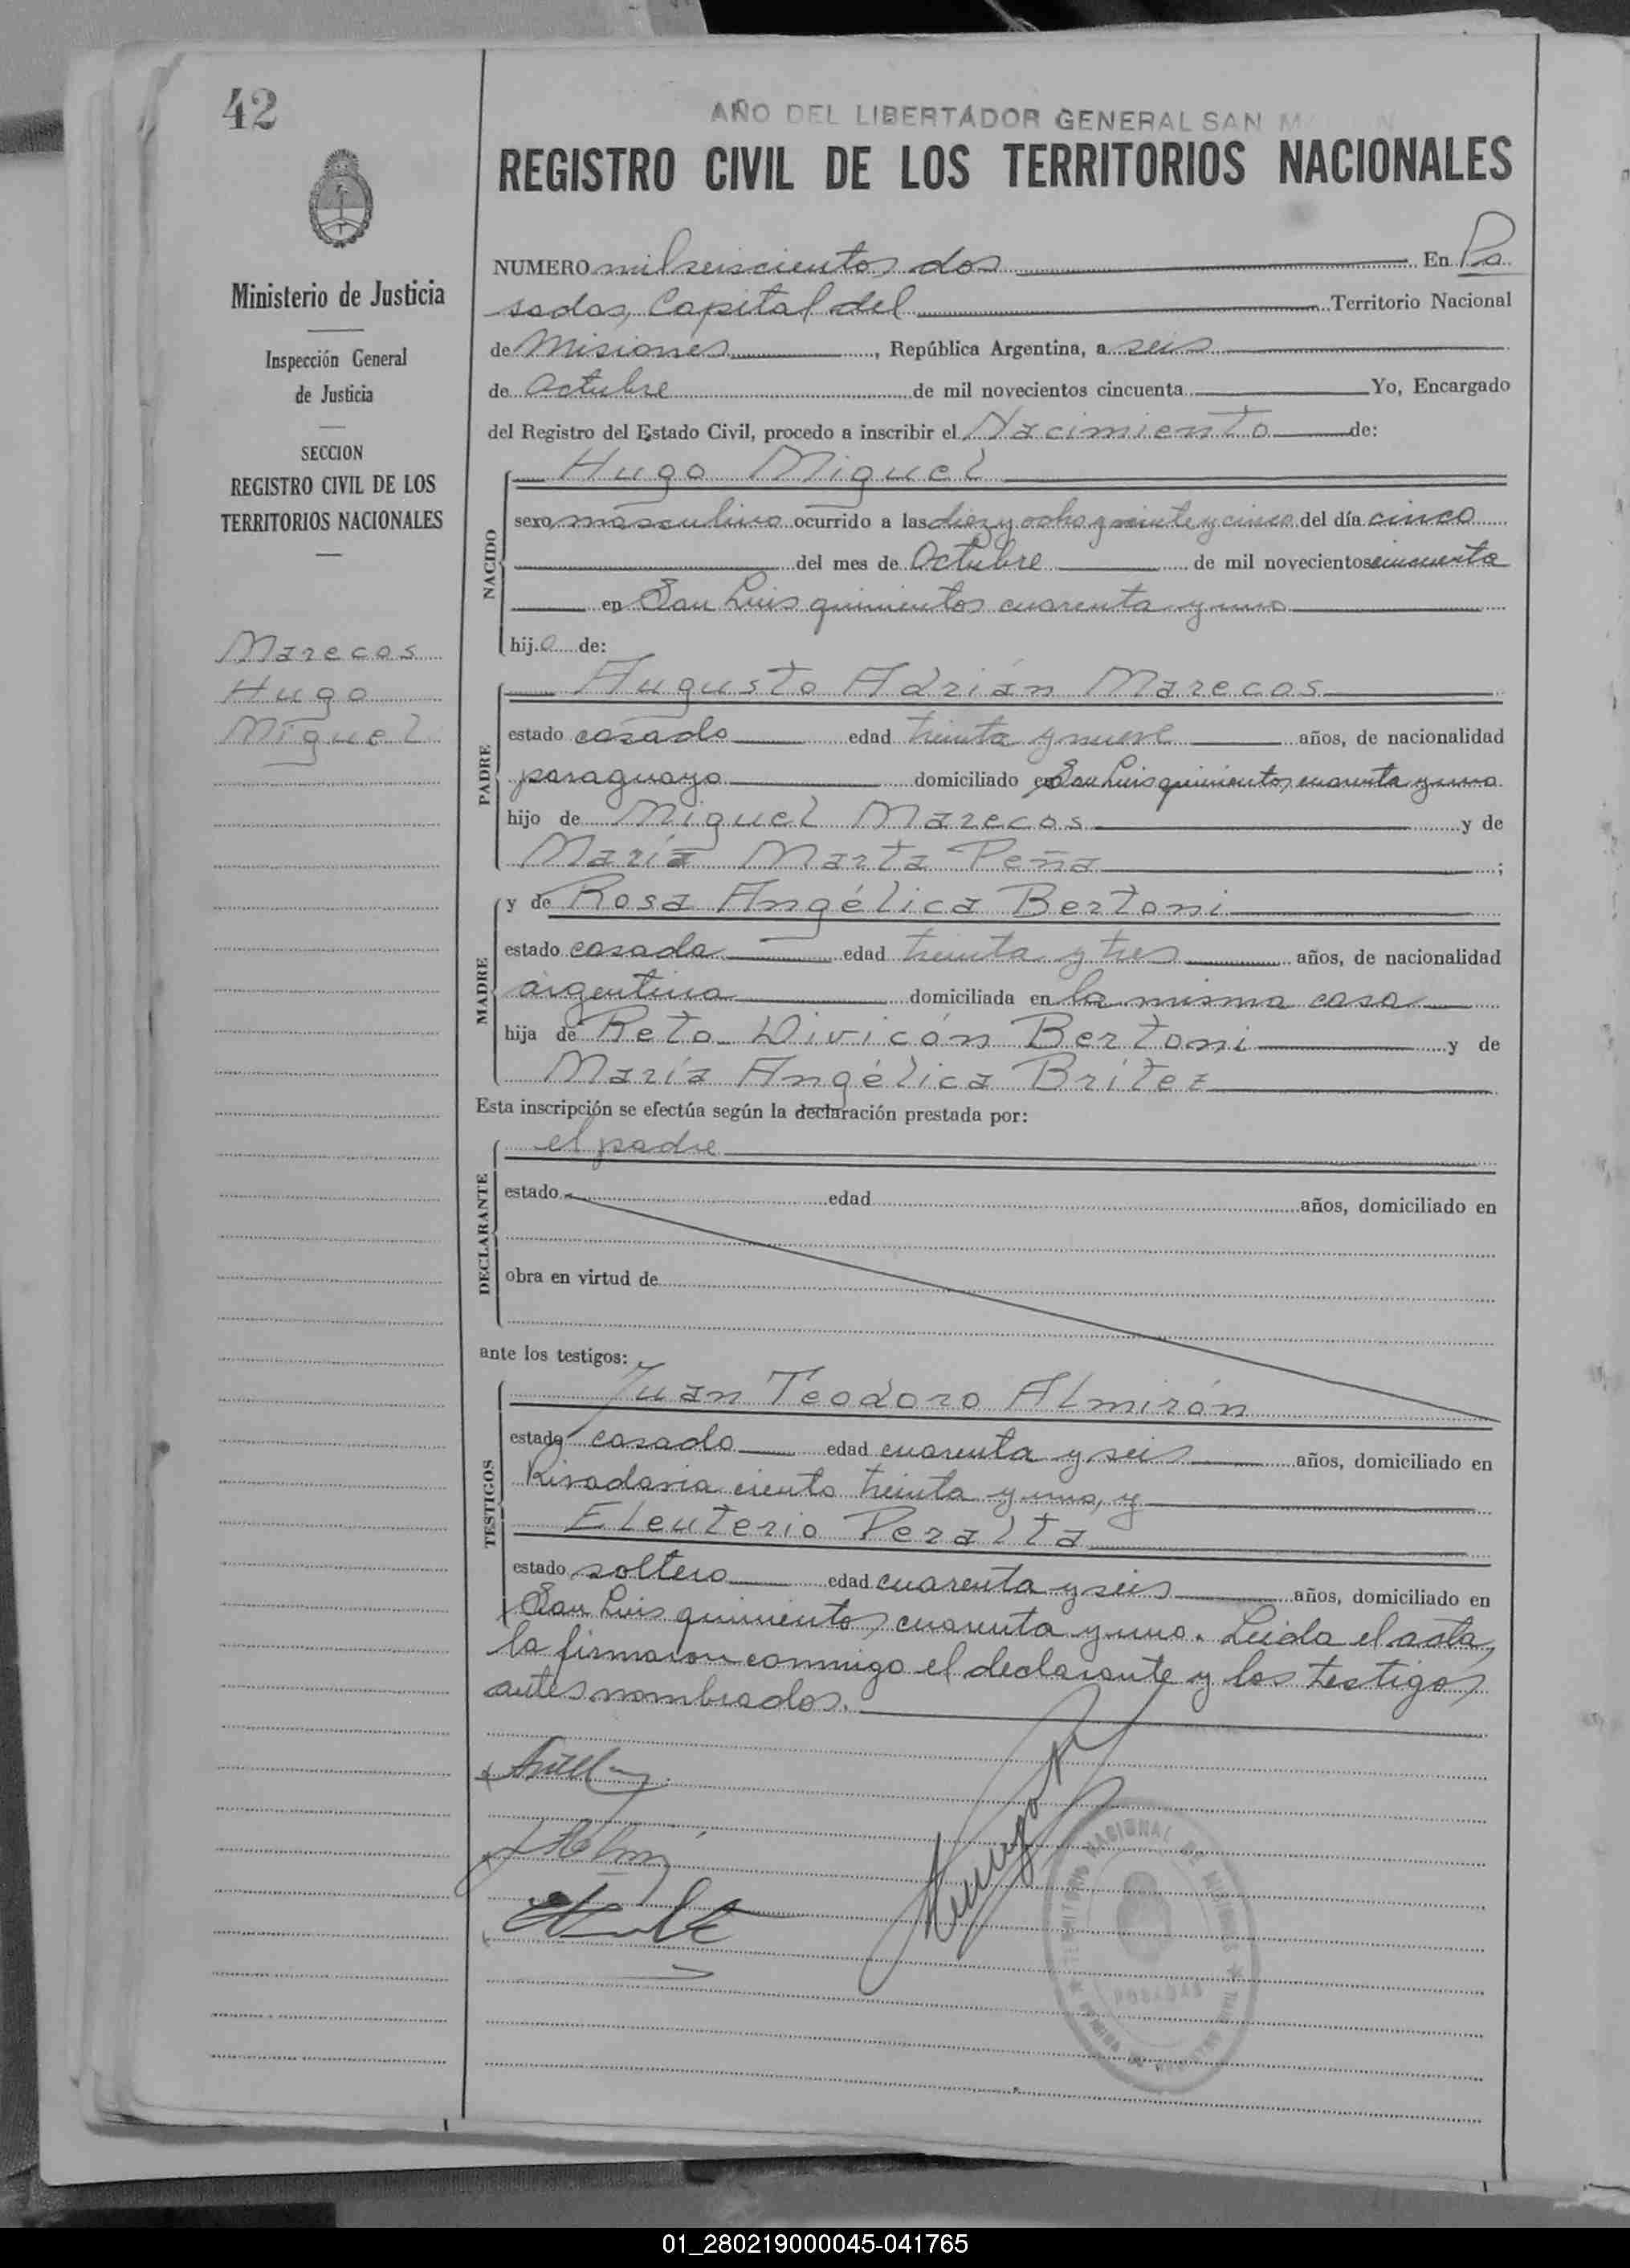 42
AÑO DEL LIBERTADOR GENERAL SAN
REGISTRO CIVIL DE LOS TERRITORIOS NACIONALES
Ministerio de Justicia
Inspección General
de Justicia
SECCION
REGISTRO CIVIL DE LOS
TERRITORIOS NACIONALES
Marecos
Hugo
Miguel
NUMERO mil seiscientos dos En Po
sadas, Capital del Territorio Nacional
de Misiones, República Argentina, a seis
de Octubre de mil novecientos cincuenta Yo, Encargado
del Registro del Estado Civil, procedo a inscribir el Nacimiento de:
NACIDO
Hugo Miguel
sexo masculino ocurrido a las diez y ocho y veinte y cinco del día cinco
del mes de Octubre de mil novecientos cincuenta
en San Luis quinientos cuarenta y uno
hijo de:
PADRE
Augusto Adrián Marecos
estado casado edad treinta y nueve años, de nacionalidad
paraguayo domiciliado en San Luis quinientos cuarenta y uno
hijo de Miguel Marecos y de
María Marta Peña;
MADRE
y de Rosa Angélica Bertoni
estado casada edad treinta y tres años, de nacionalidad
argentina domiciliada en la misma casa
hija de Reto Divicón Bertoni y de
María Angélica Brítez
Esta inscripción se efectúa según la declaración prestada por:
DECLARANTE
el padre
estado edad años, domiciliado en
obra en virtud de
ante los testigos:
TESTIGOS
Juan Teodoro Almirón
estado casado edad cuarenta y seis años, domiciliado en
Rivadavia ciento treinta y uno, y
Eleuterio Peralta
estado soltero edad cuarenta y seis años, domiciliado en
San Luis quinientos cuarenta y uno. Leída el acta,
la firmaron conmigo el declarante y los testigos
antes nombrados.
NACIONAL DE MISIONES
POSADAS
01_280219000045-041765